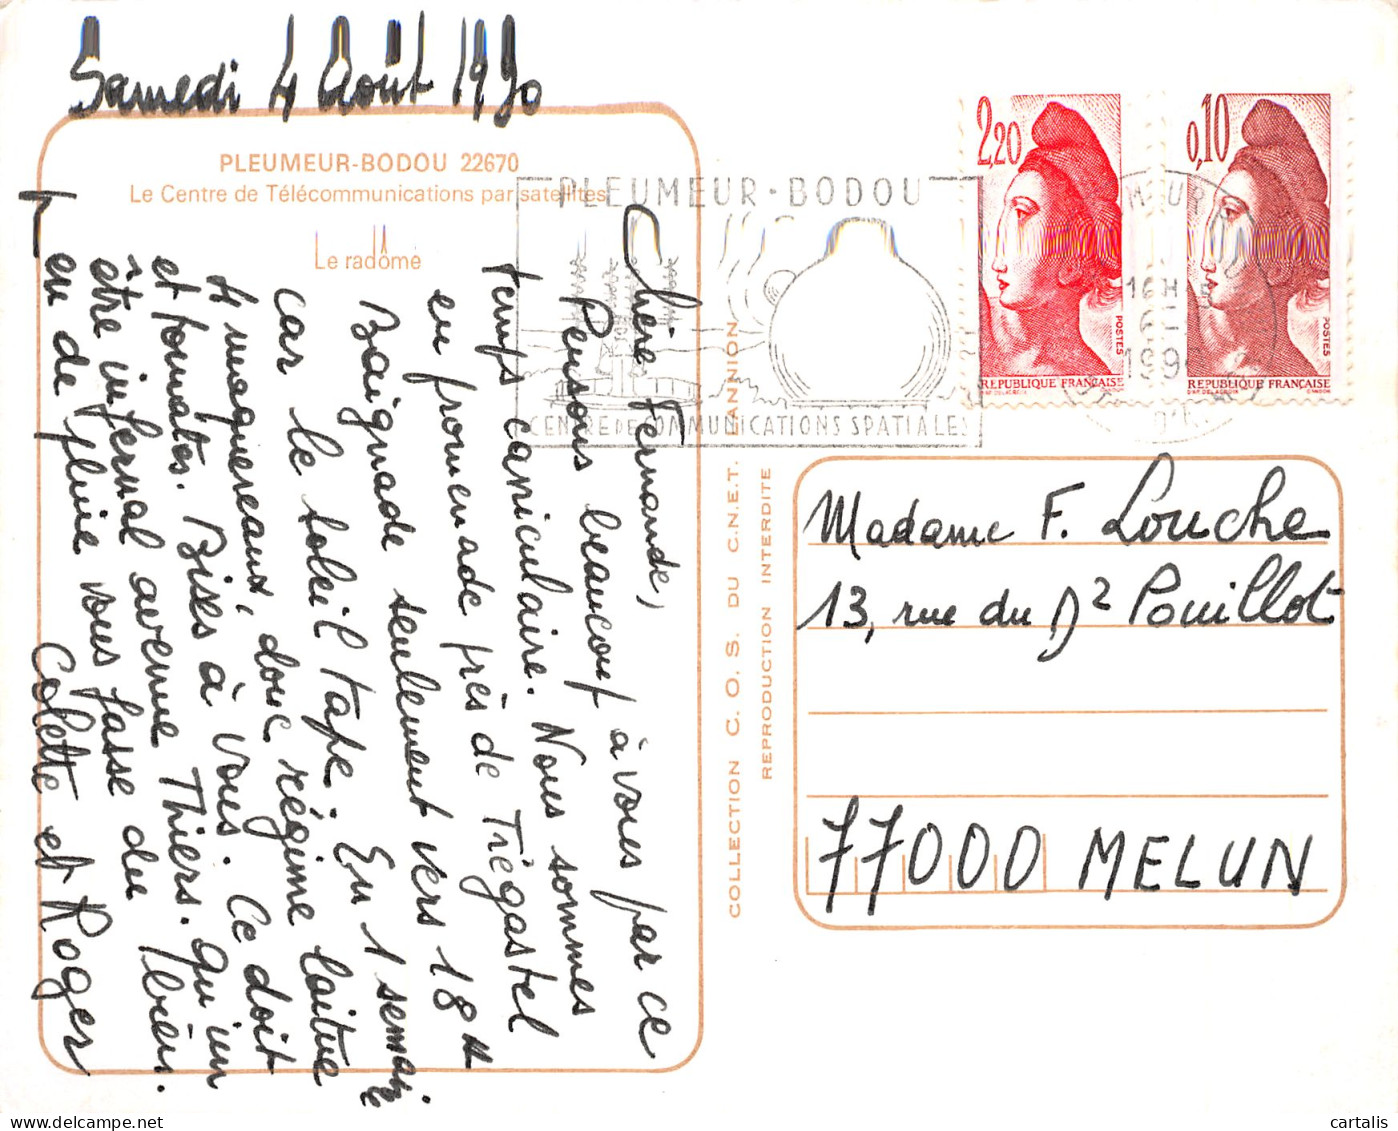 Samedi 4 Août 1990
PLEUMEUR-BODOU 22670
Le Centre de Télécommunications par satellites
Le radôme
Chère Fernande,
Pensons beaucoup à vous par ce
temps caniculaire. Nous sommes
en promenade près de Trégastel
Baignade seulement vers 18 H
car le soleil tape. En 1 semaine
4 maquereaux, donc régime laitue
et tomates. Bises à vous. Ce doit
être infernal avenue Thiers. Qu'un
en de pluie vous fasse du bien.
Colette et Roger
COLLECTION C. O. S. DU C.N.E.T. LANNION
REPRODUCTION INTERDITE
PLEUMEUR-BODOU
CENTRE DE COMMUNICATIONS SPATIALES
2,20
POSTES
REPUBLIQUE FRANÇAISE
0,10
POSTES
REPUBLIQUE FRANÇAISE
16H
1990
Madame F. Louche
13, rue du Dr Pouillot
77000 MELUN
cartalis.com